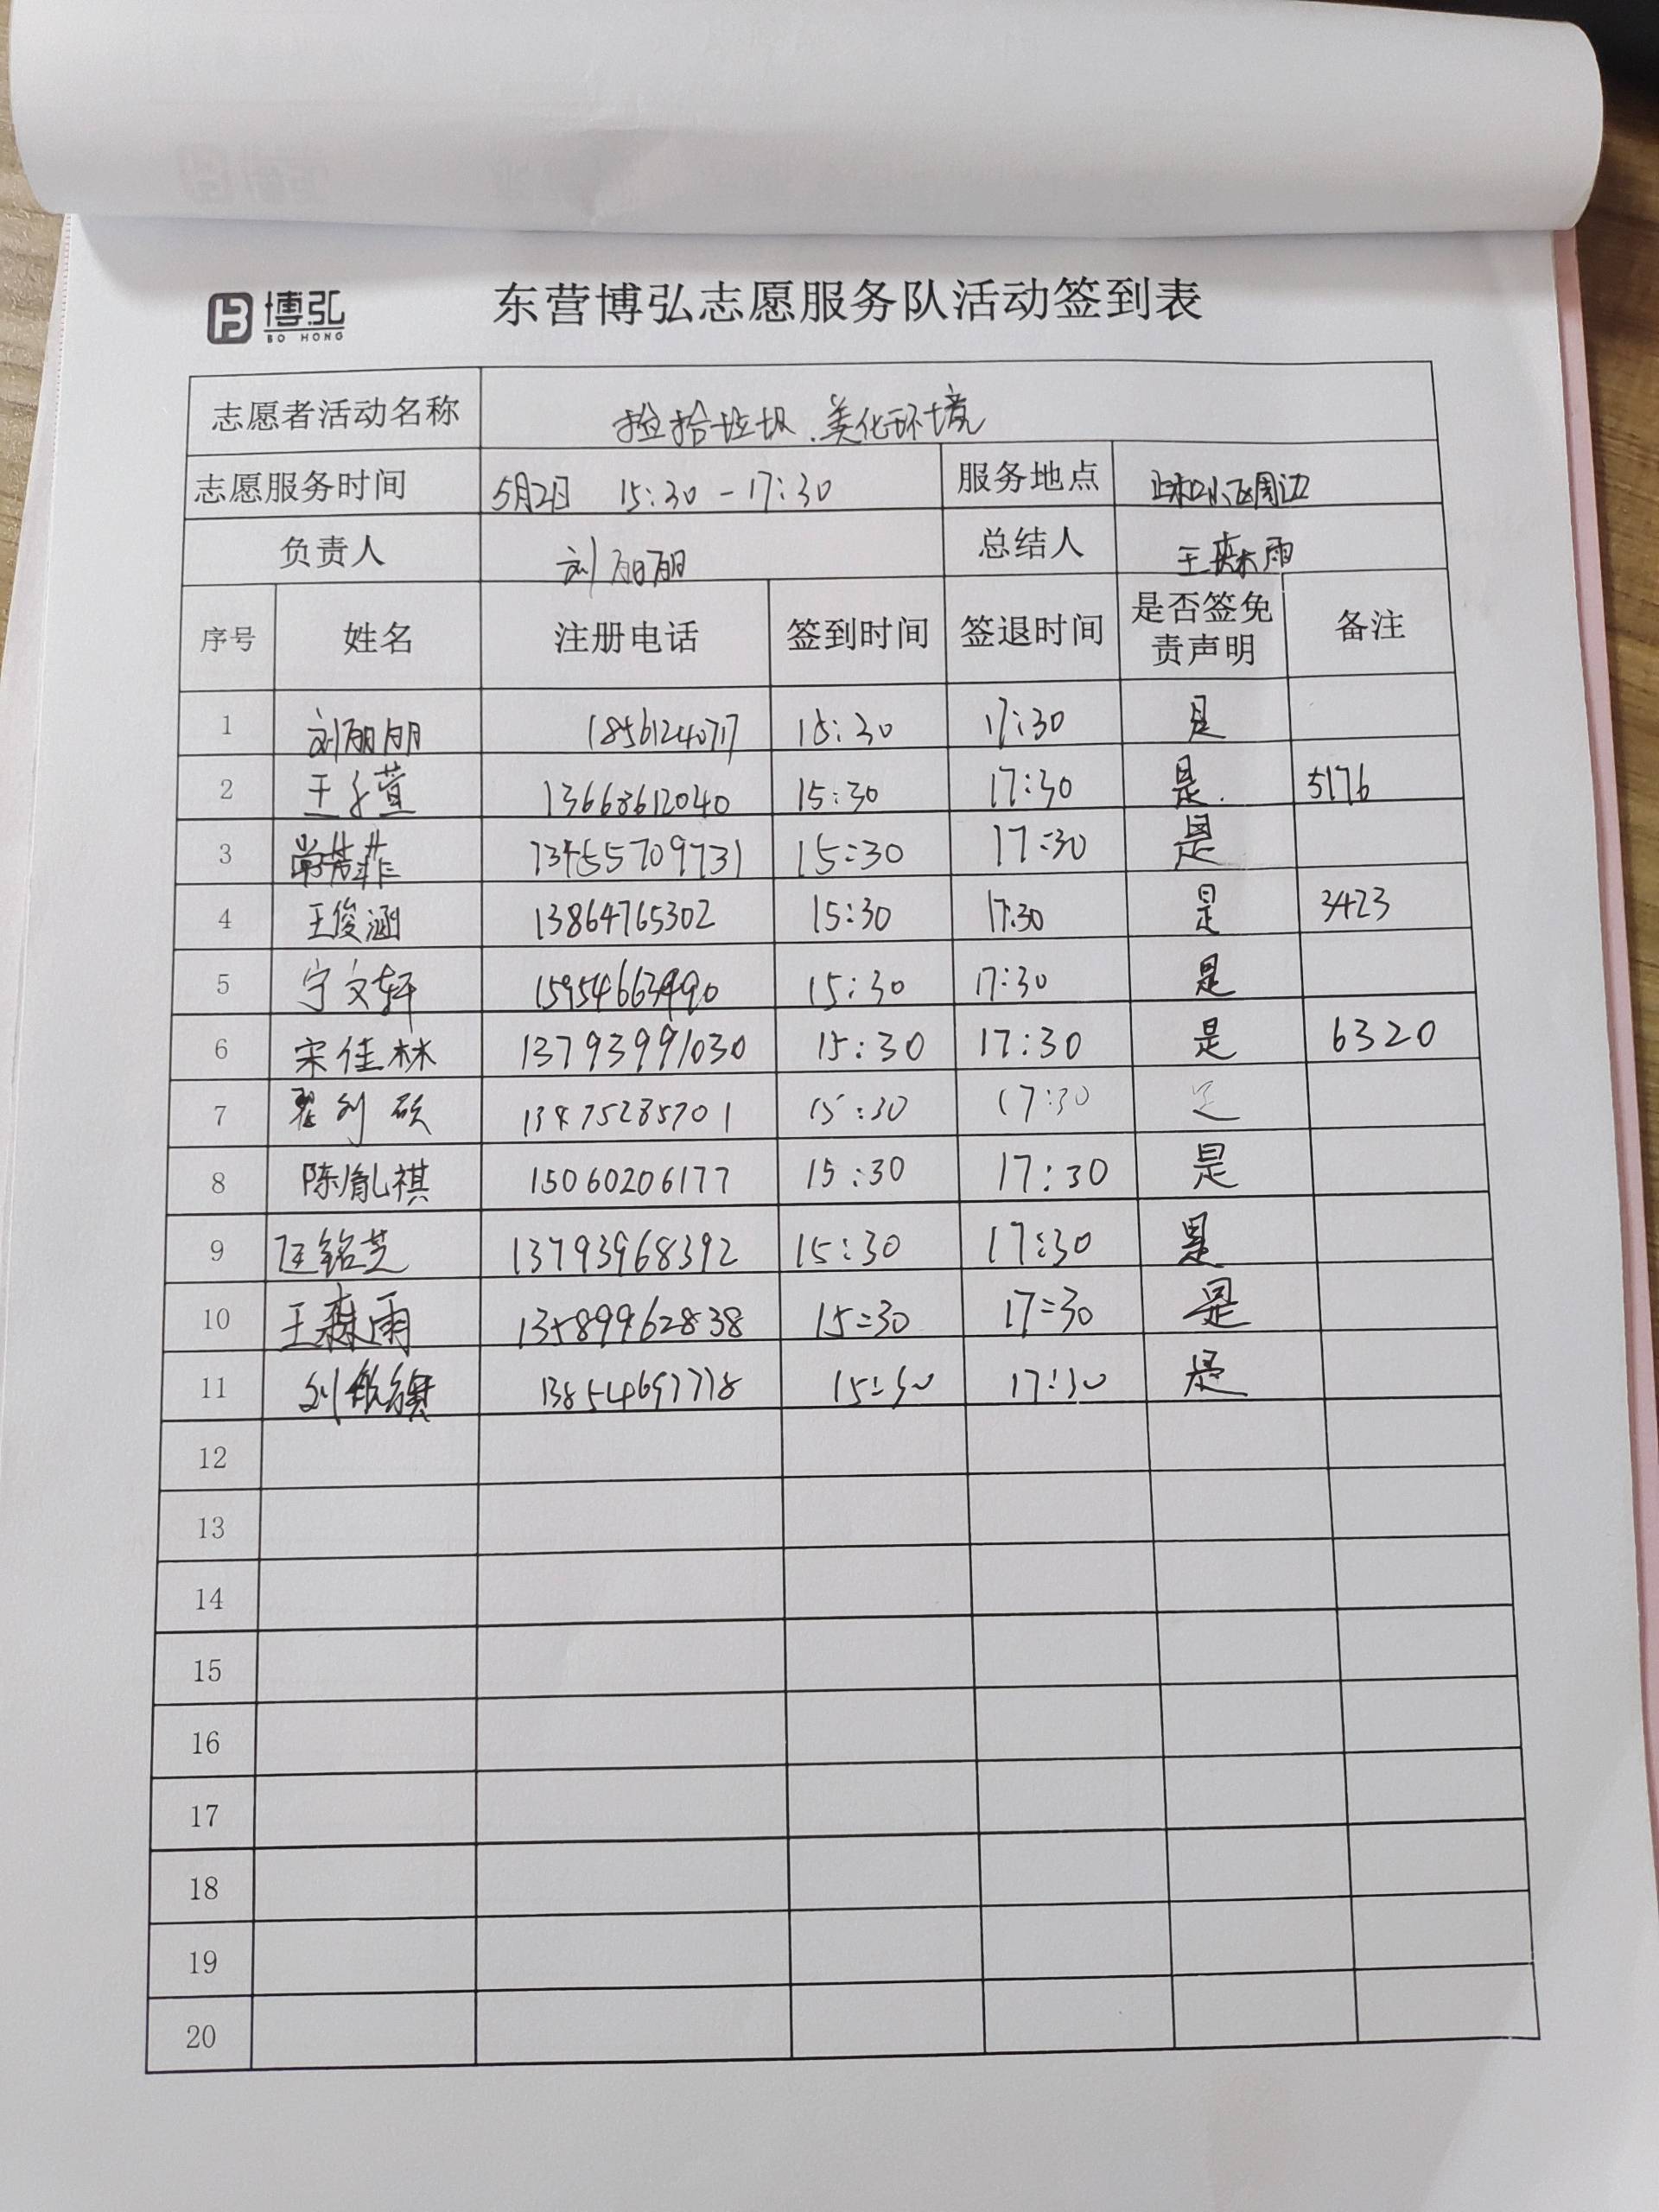 博弘
BO HONG
东营博弘志愿服务队活动签到表
志愿者活动名称 捡拾垃圾.美化环境
志愿服务时间 5月2日 15:30-17:30 服务地点 小区周边
负责人 刘丽丽 总结人 王森雨
序号 姓名 注册电话 签到时间 签退时间 是否签免责声明 备注
1 刘丽丽 15:30 17:30 是
2 王子萱 13668612040 15:30 17:30 是. 5176
3 菲 13455709731 15:30 17:30 是
4 王俊涵 13864765302 15:30 17:30 是 3423
5 宁文轩 15:30 17:30 是
6 宋佳林 13793991030 15:30 17:30 是 6320
7 硕 13475285701 15:30 17:30 是
8 陈胤祺 15060206177 15:30 17:30 是
9 匡铭芝 13793968392 15:30 17:30 是
10 王森雨 13589962838 15:30 17:30 是
11 刘 15:30 17:30 是
12
13
14
15
16
17
18
19
20